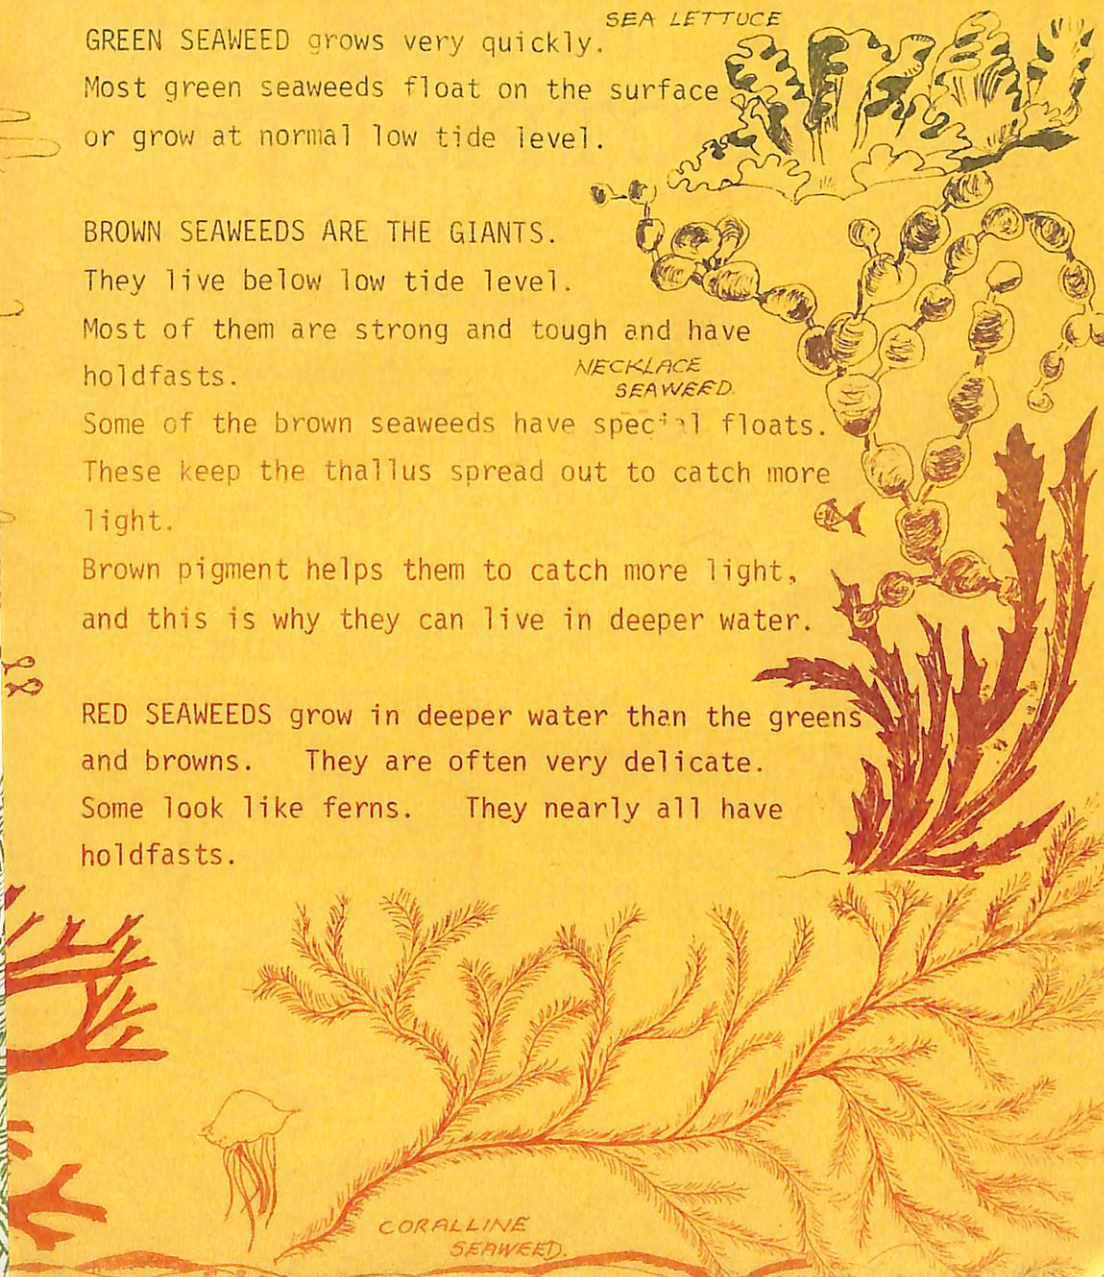 SEA LETTUCE
GREEN SEAWEED grows very quickly.
Most green seaweeds float on the surface
or grow at normal low tide level.
BROWN SEAWEEDS ARE THE GIANTS.
They live below low tide level.
Most of them are strong and tough and have
holdfasts.
NECKLACE
SEAWEED.
Some of the brown seaweeds have special floats.
These keep the thallus spread out to catch more
light.
Brown pigment helps them to catch more light,
and this is why they can live in deeper water.
RED SEAWEEDS grow in deeper water than the greens
and browns. They are often very delicate.
Some look like ferns. They nearly all have
holdfasts.
CORALLINE
SEAWEED.